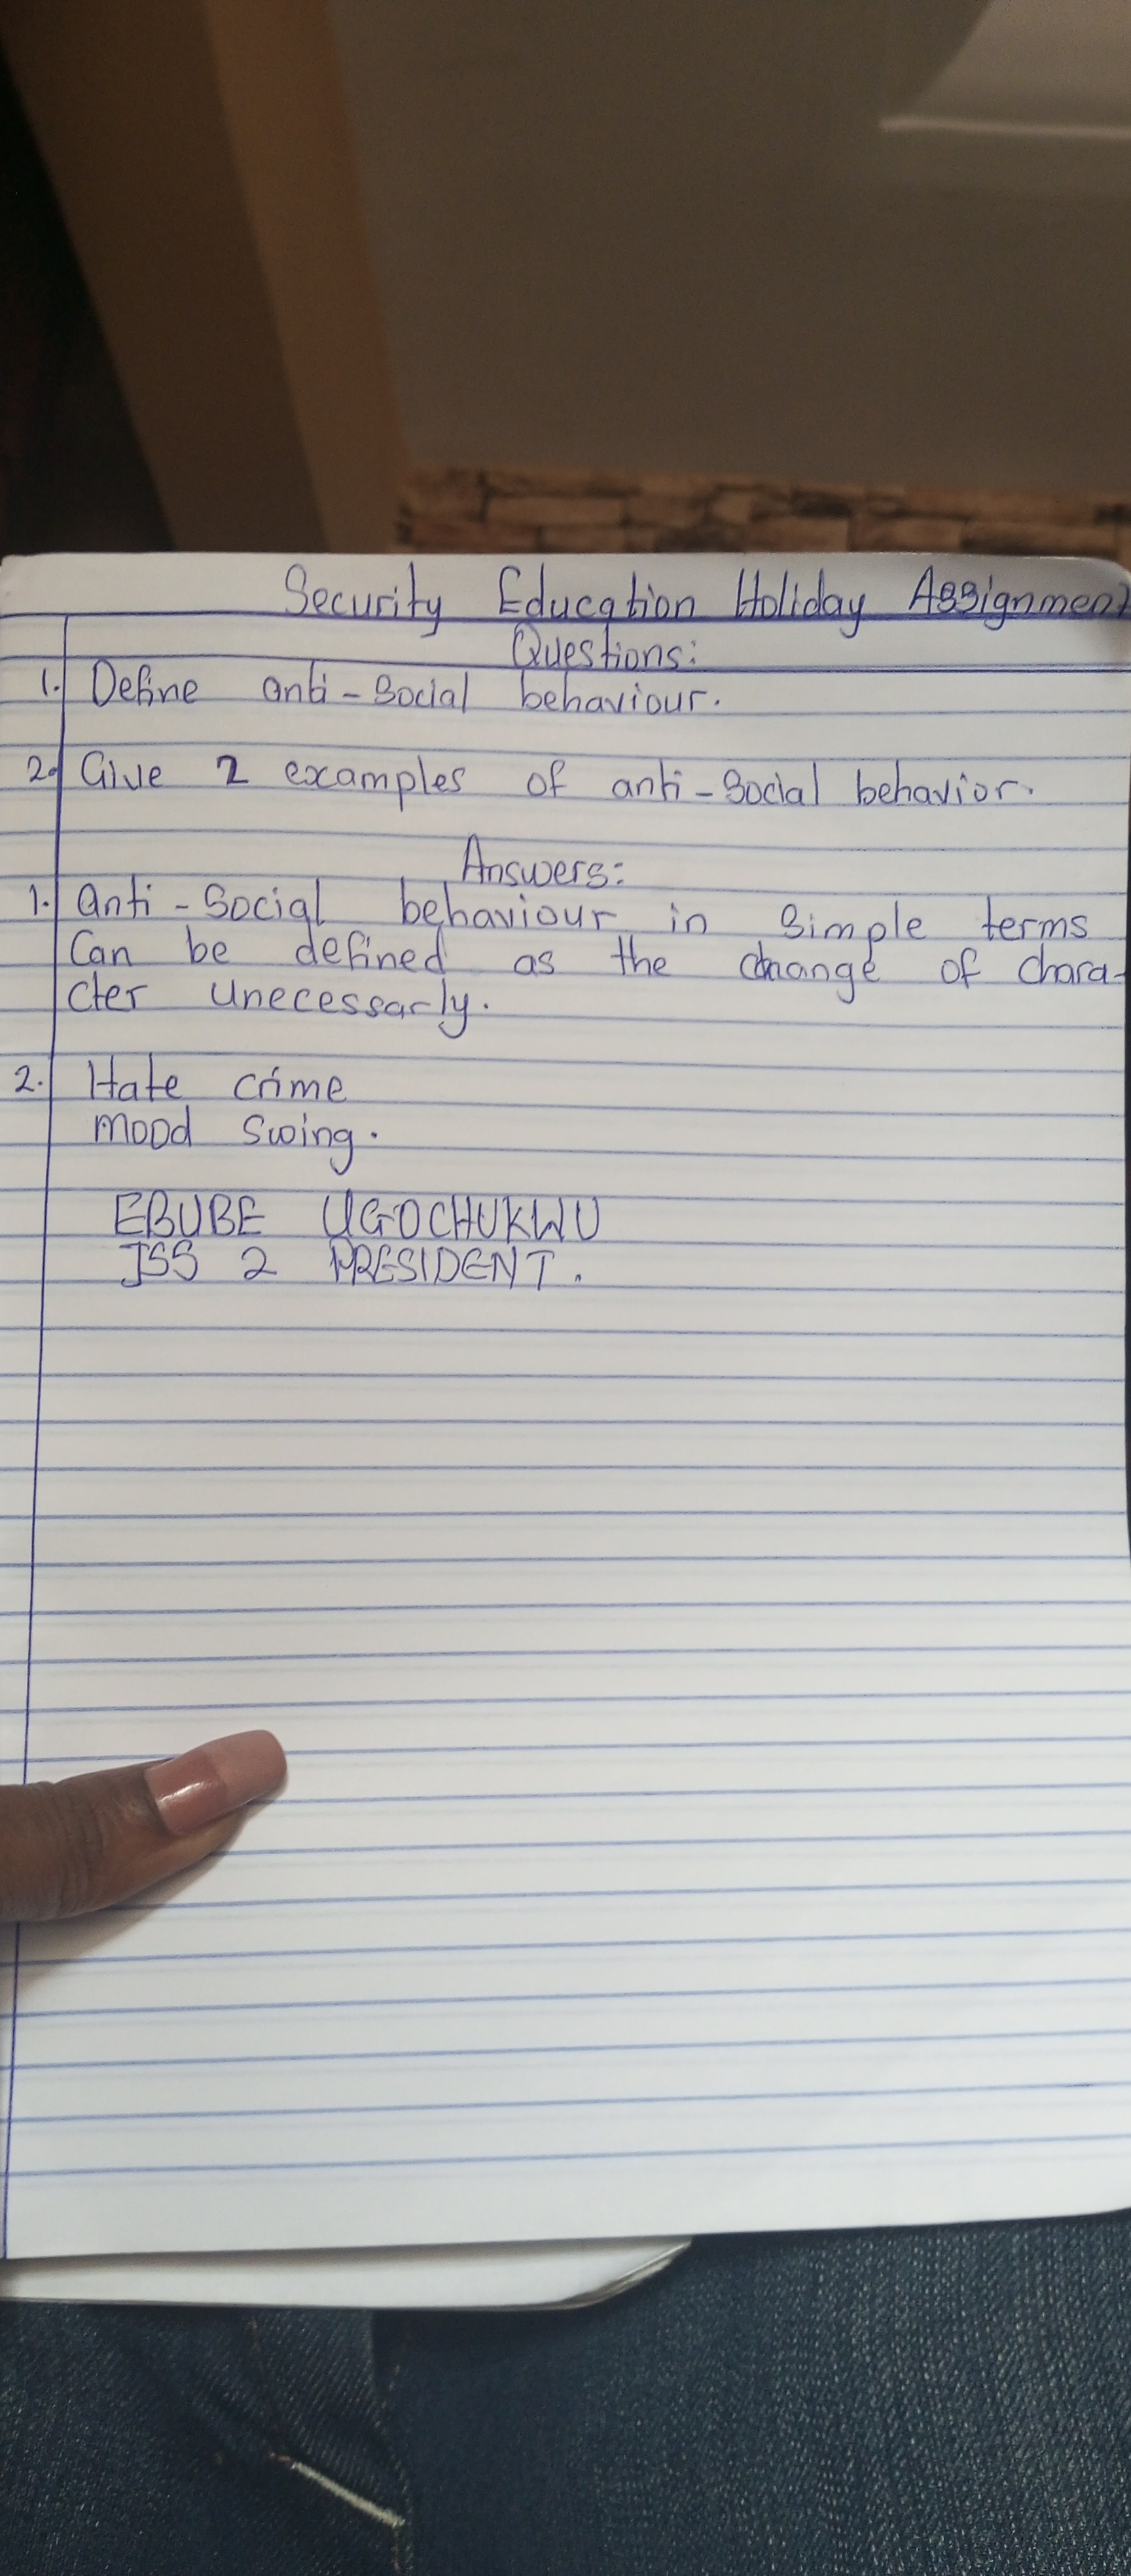 Security Education Holiday Assignment
Questions:
1. Define anti-social behaviour.
2. Give 2 examples of anti-social behavior.
Answers:
1. Anti-Social behaviour in simple terms
Can be defined as the change of chara-
cter unecessarly.
2. Hate crime
Mood swing.
EBUBE UGOCHUKWU
JSS 2 PRESIDENT.